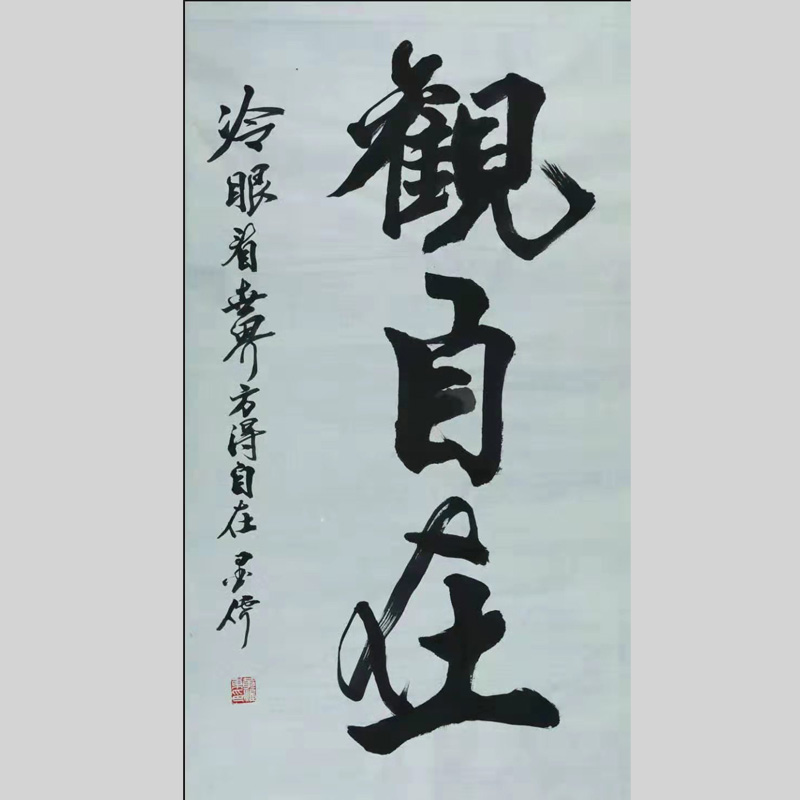 觀自在
冷眼看世界方得自在墨儒